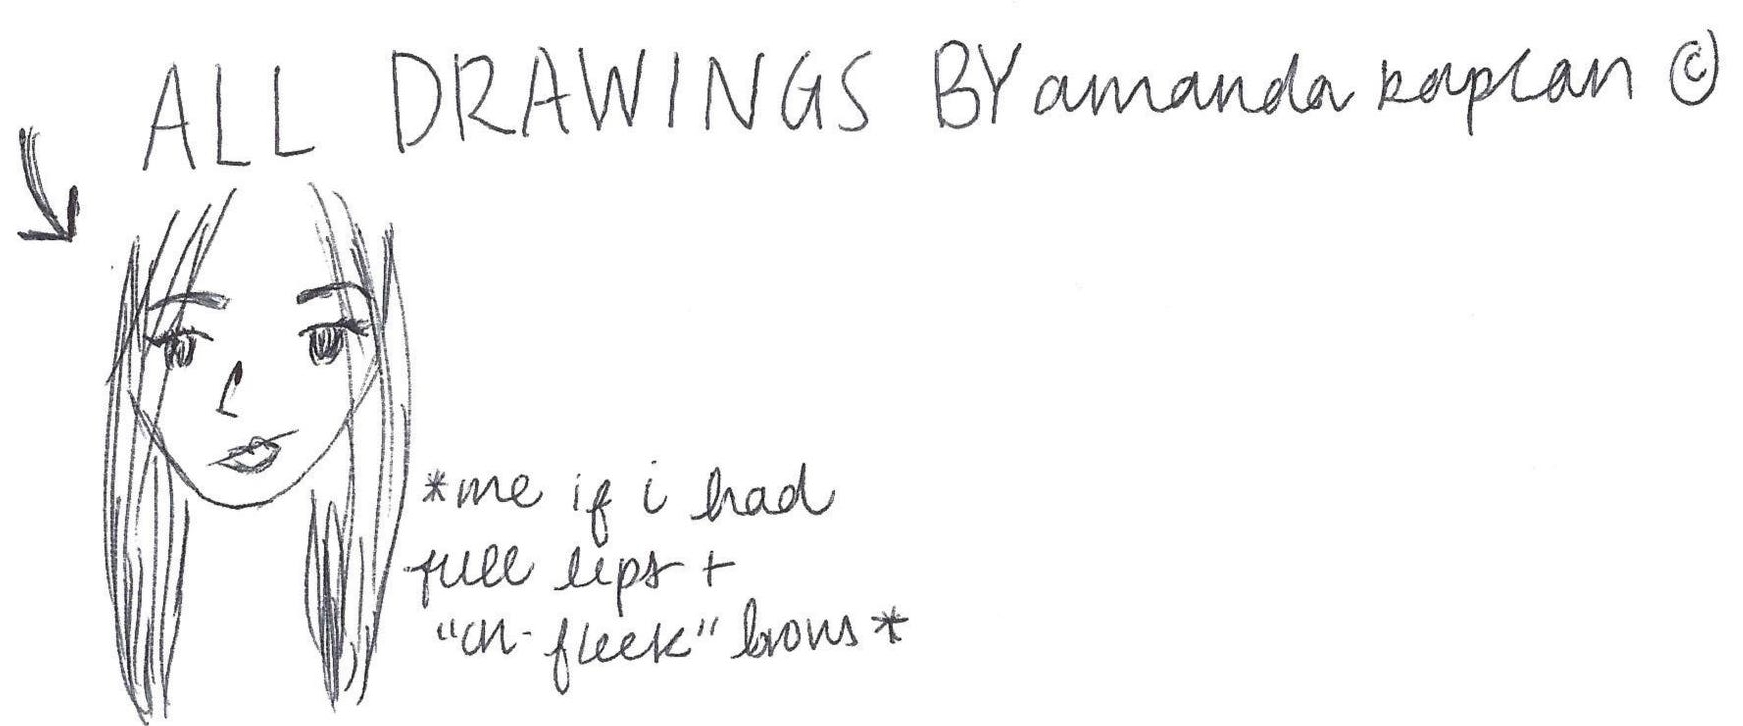 ALL DRAWINGS BY amanda kaplan ©
*me if i had
full lips +
"on-fleek" brows*